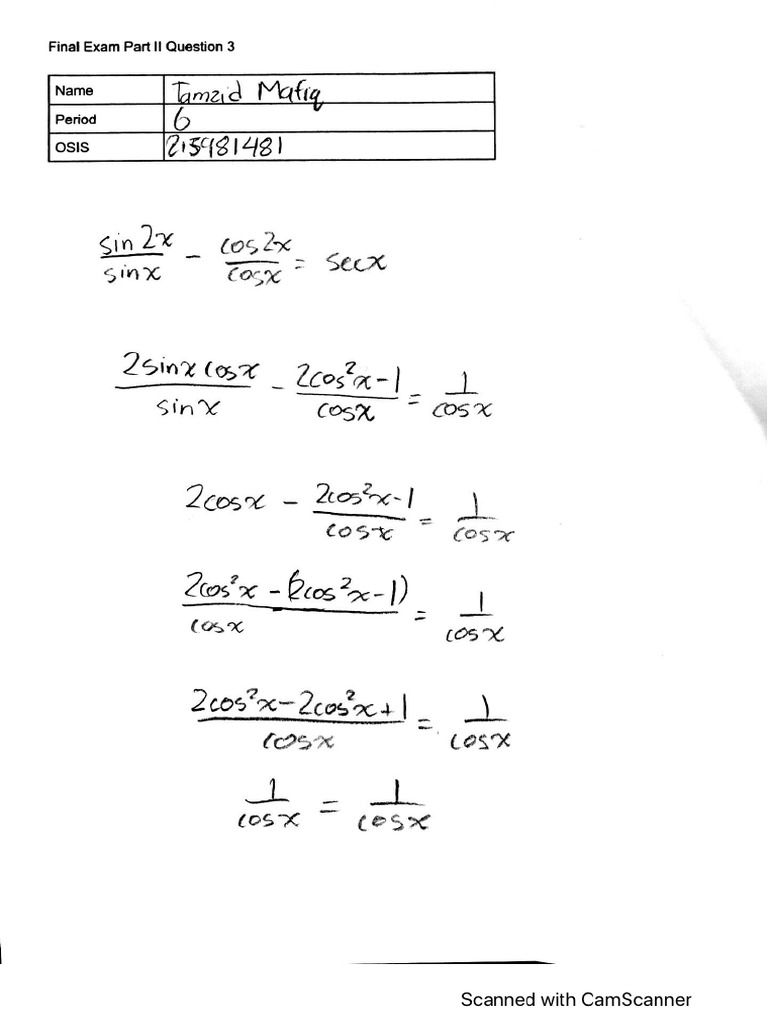 Final Exam Part II Question 3
Name Tamzid Mafiq
Period 6
OSIS 215981481
sin2x/sinx - cos2x/cosx = secx
2sinxcosx/sinx - 2cos²x-1/cosx = 1/cosx
2cosx - 2cos²x-1/cosx = 1/cosx
2cos²x - (2cos²x-1)/cosx = 1/cosx
2cos²x-2cos²x+1/cosx = 1/cosx
1/cosx = 1/cosx
Scanned with CamScanner